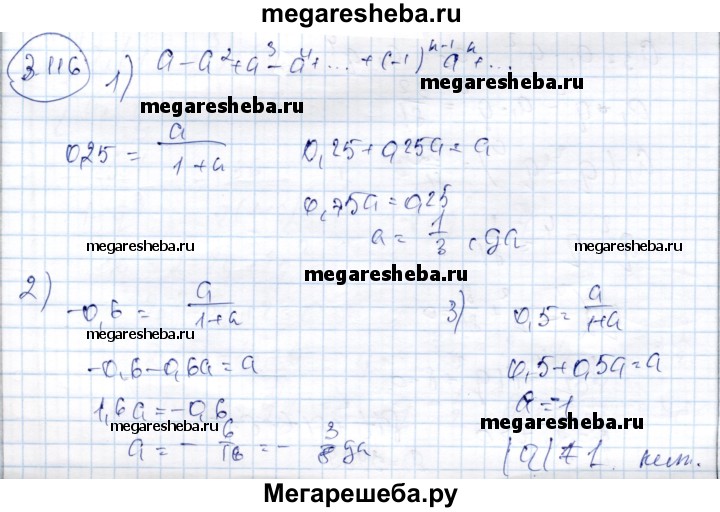 megaresheba.ru
3 116
1) a - a² + a³ - a⁴ + ... + (-1)ⁿ⁻¹ aⁿ + ...
megaresheba.ru megaresheba.ru
0,25 = a/(1+a) 0,25 + 0,25a = a
0,75a = 0,25
a = 1/3 , да
megaresheba.ru megaresheba.ru megaresheba.ru
2) -0,6 = a/(1+a) 3) 0,5 = a/(1+a)
megaresheba.ru
-0,6 - 0,6a = a 0,5 + 0,5a = a
1,6a = -0,6 a = 1
megaresheba.ru megaresheba.ru
a = - 6/16 = - 3/8 да |q| ≠ 1 нет.
Мегарешеба.ру